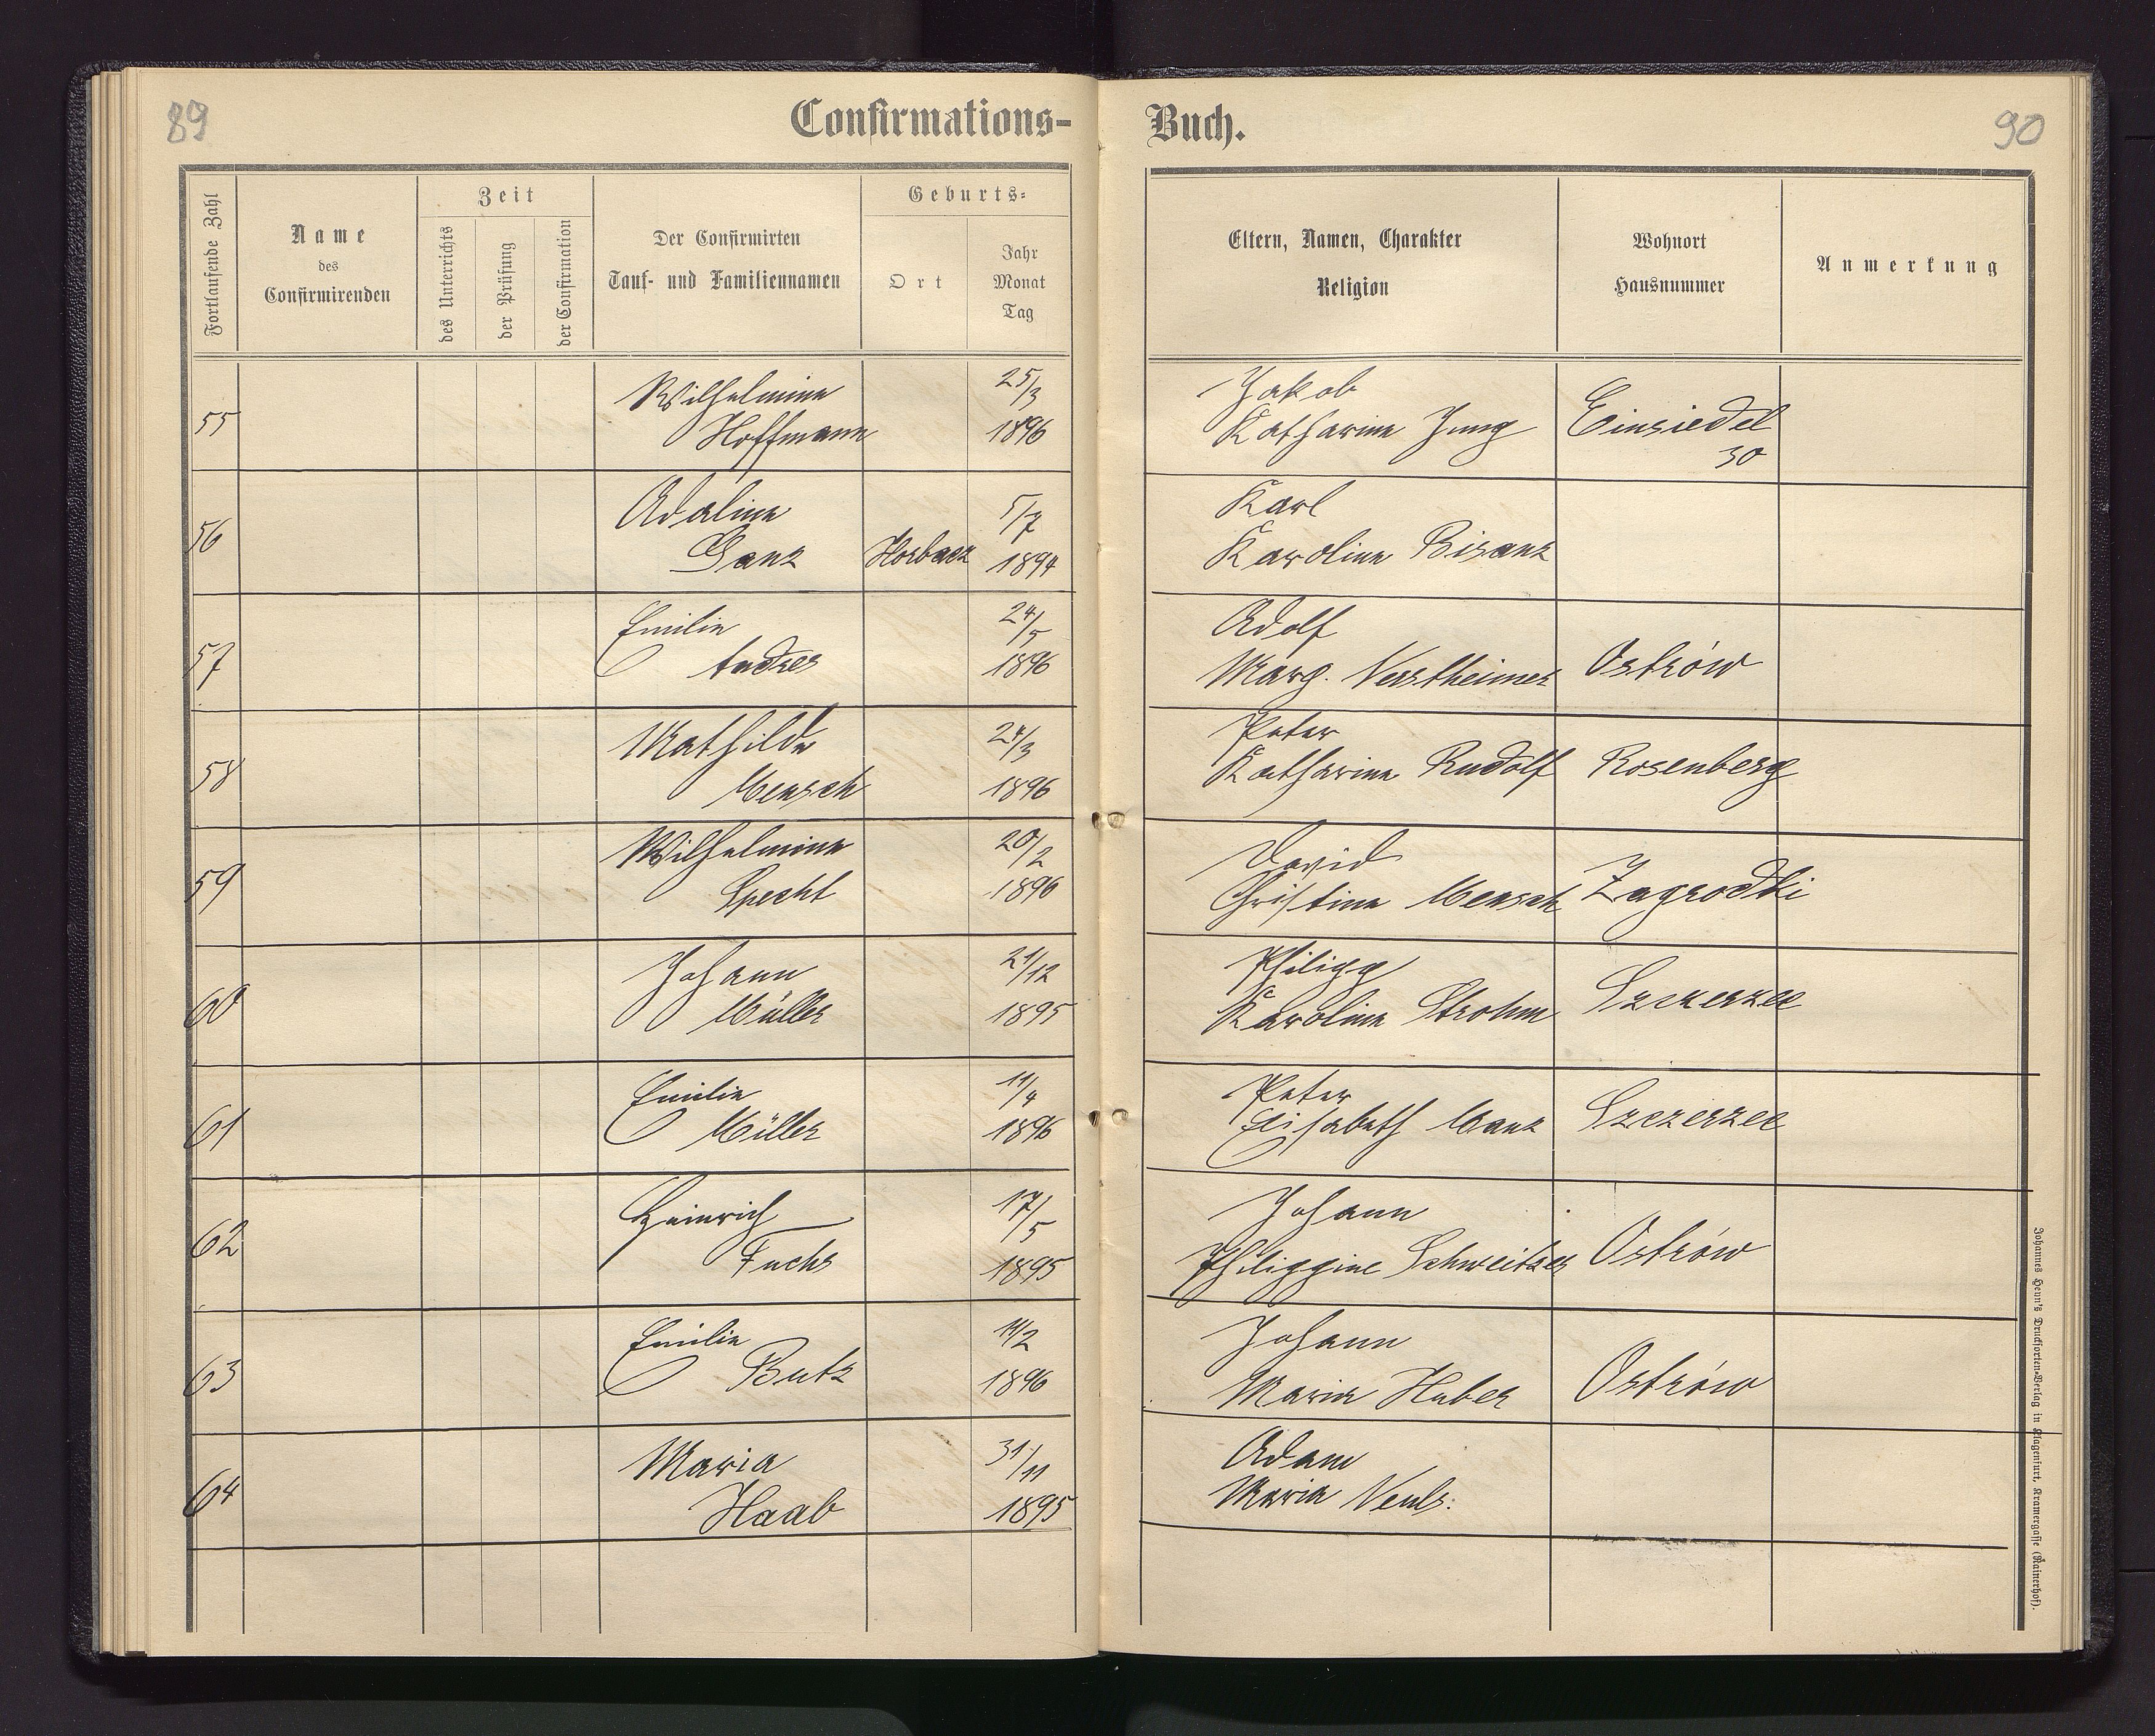 89
Confirmations-
Buch.
90
Fortlaufende Zahl
Name
des
Confirmirenden
Zeit
des Unterrichts
der Prüfung
der Confirmation
Der Confirmirten
Tauf- und Familiennamen
Geburts-
Ort
Jahr
Monat
Tag
Eltern, Namen, Charakter
Religion
Wohnort
Hausnummer
Anmerkung
55 Wilhelmine Hoffmann 25/3 1896 Jakob Katharina Jung Einsiedel 30
56 Adaline Ganz Horbacz 5/7 1894 Karl Karoline Bisanz
57 Emilie Andres 24/5 1896 Adolf Marg. Ostrów
58 Mathilde Mensch 24/3 1896 Peter Katharina Rudolf Rosenberg
59 Wilhelmine Specht 20/2 1896 David Christine Mensch Zagrodki
60 Johann Müller 21/12 1895 Philipp Karoline Strohm Szczerzec
61 Emilie Müller 11/4 1896 Peter Elisabeth Manz Szczerzec
62 Heinrich Fuchs 17/5 1895 Johann Philippine Schweitzer Ostrów
63 Emilie Butz 14/2 1896 Johann Maria Huber Ostrów
64 Maria Haab 31/11 1895 Adam Maria
Johannes Heun's Drucksorten-Verlag in Klagenfurt, Kramergasse (Rainerhof).